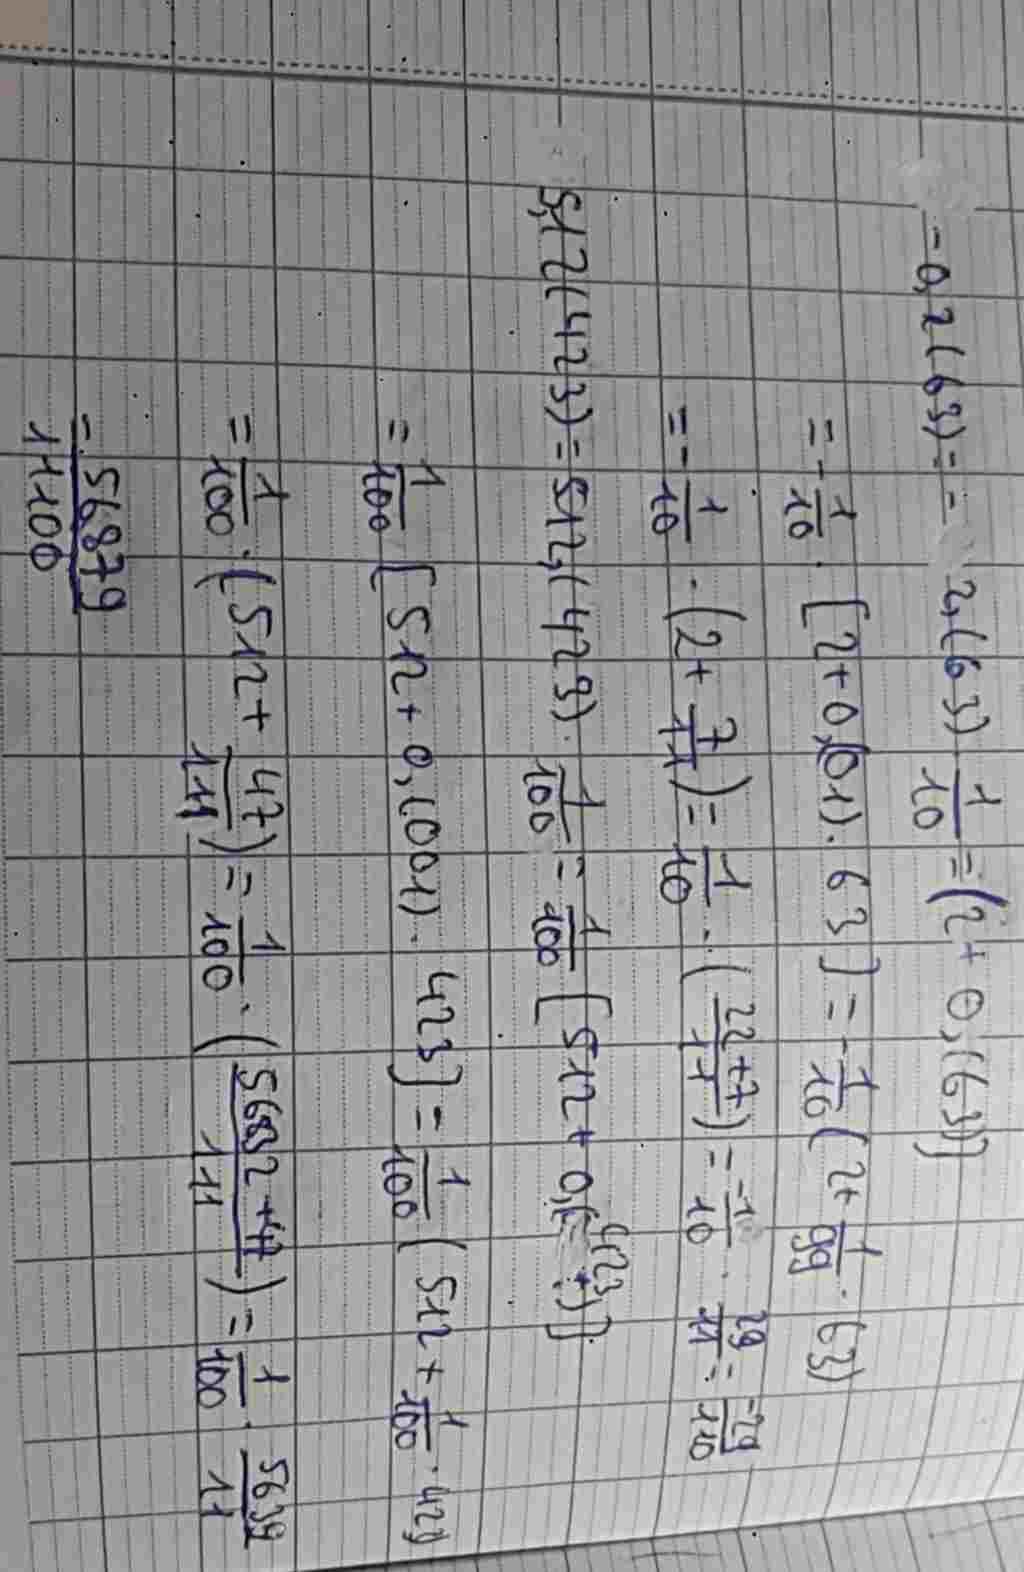 -0,2(63) = - 2,(63) 1/10 = (2 + 0,(63)]
= -1/10 . [2 + 0,(01). 63] = -1/10 (2 + 1/99 . 63)
= -1/10 . (2 + 7/11) = 1/10 . (22+7/11) = -1/10 . 29/11 = -29/110
5,12(423) = 512,(423) . 1/100 = 1/100 [512 + 0,(423)].
= 1/100 [512 + 0,(001). 423] = 1/100 (512 + 1/100 . 423)
= 1/100 . (512 + 47/111) = 1/100 . (56832+47/111) = 1/100 . 5639/11
= 56879/11100